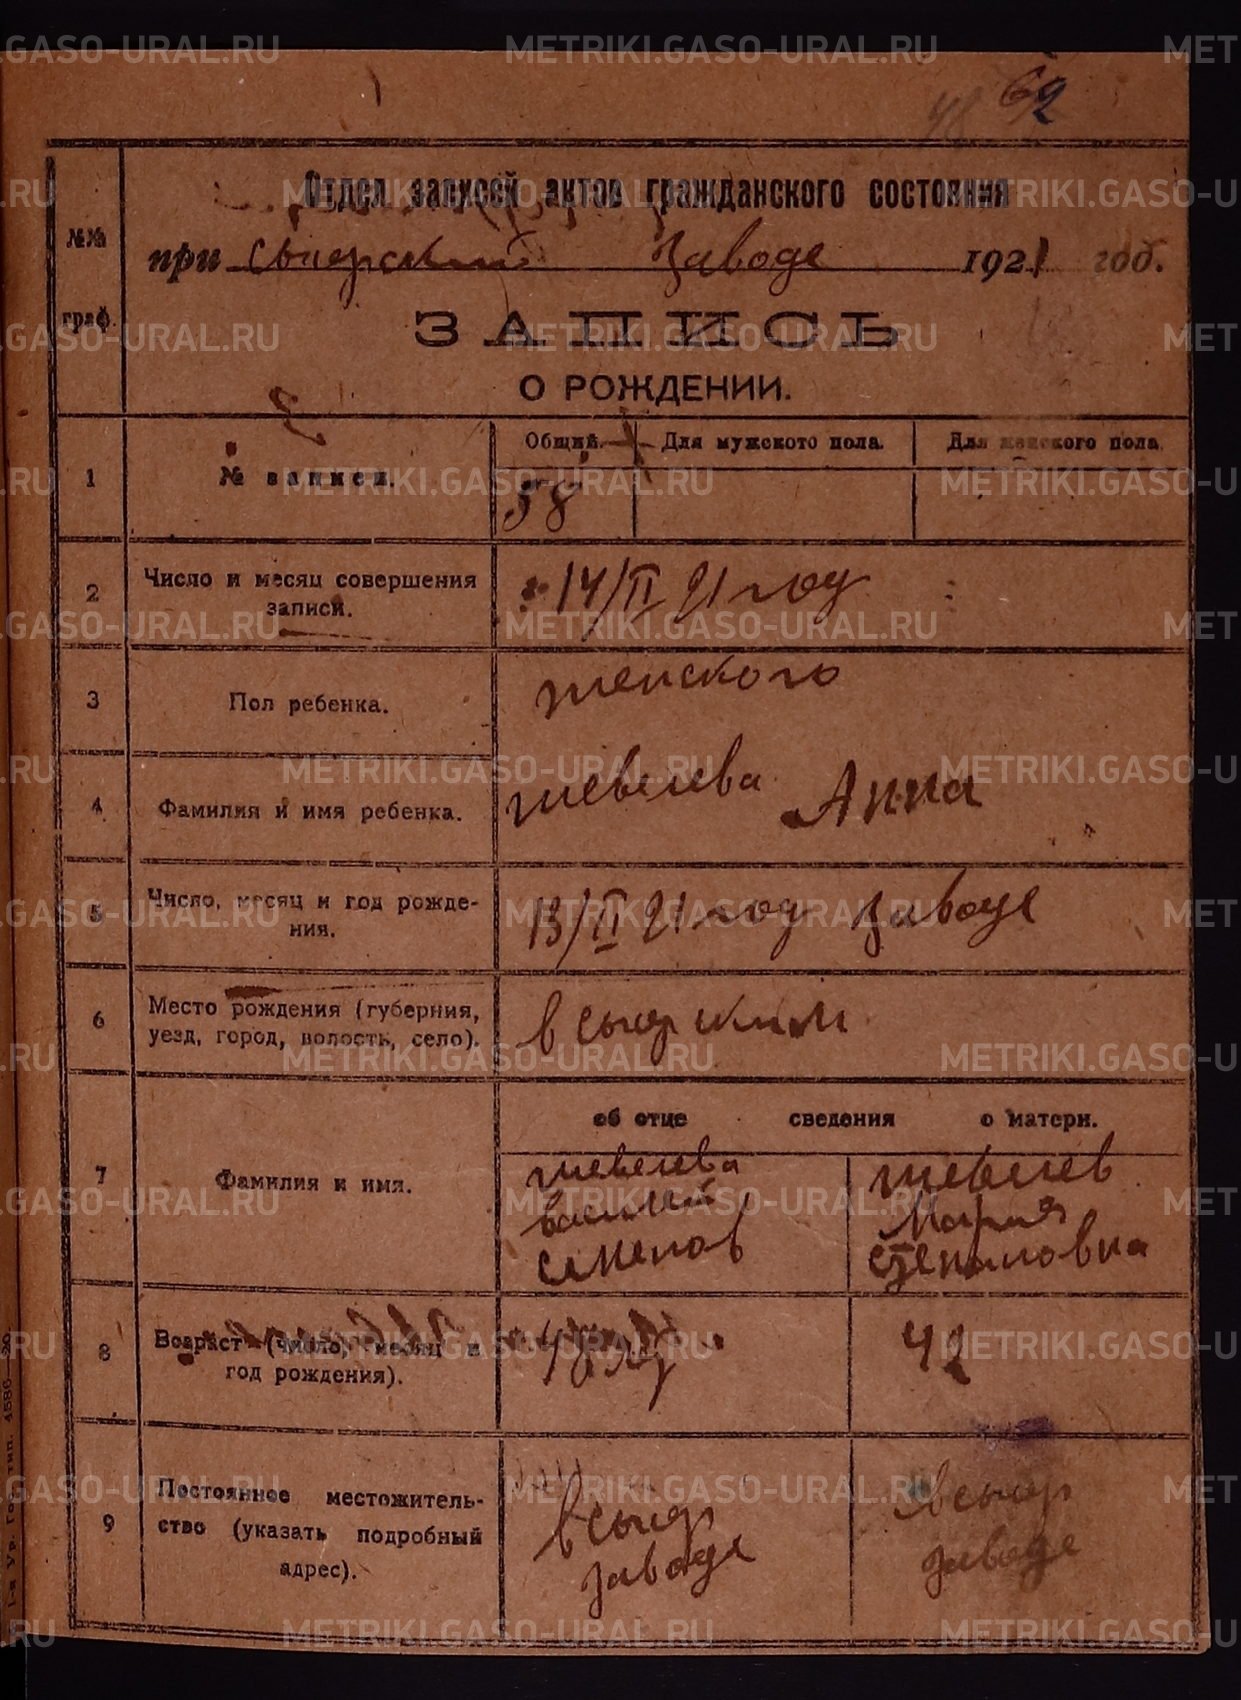 69
Отдел записей актов гражданского состояния
№№ граф.
при Сысерский Заводе 1921 год.
ЗАПИСЬ
О РОЖДЕНИИ.
Общий. Для мужского пола. Для женского пола.
1 № записи. 58
2 Число и месяц совершения записи. 14/II 21 году
3 Пол ребенка. женского
4 Фамилия и имя ребенка. шевелева Анна
5 Число, месяц и год рождения. 13/II 21 году Заводе
6 Место рождения (губерния, уезд, город, волость, село). в сысерским
об отце сведения о матери.
7 Фамилия и имя.
шевелева шевелев
василий Мария
семенов степановна
8 Возраст (число, месяц и год рождения). 42
9 Постоянное местожительство (указать подробный адрес).
в сысер в сысер
заводе заводе
METRIKI.GASO-URAL.RU